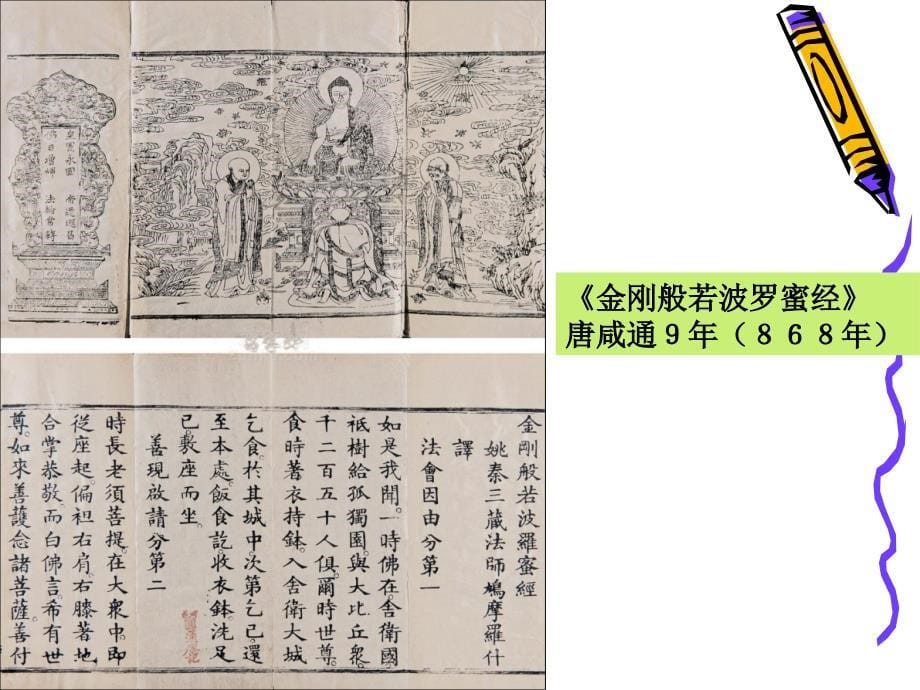 皇圖永固　帝道遐昌
佛日增輝　法輪常轉
《金刚般若波罗蜜经》
唐咸通９年（８６８年）
金剛般若波羅蜜經
姚秦三藏法師鳩摩羅什
譯
法會因由分第一
如是我聞。一時佛在舍衛國
祇樹給孤獨園。與大比丘衆
千二百五十人俱。爾時世尊。
食時著衣持鉢。入舍衛大城
乞食。於其城中。次第乞已。還
至本處。飯食訖。收衣鉢。洗足
已。敷座而坐。
善現啟請分第二
時長老須菩提。在大衆中。即
從座起。偏袒右肩。右膝著地。
合掌恭敬。而白佛言。希有世
尊。如來善護念諸菩薩。善付